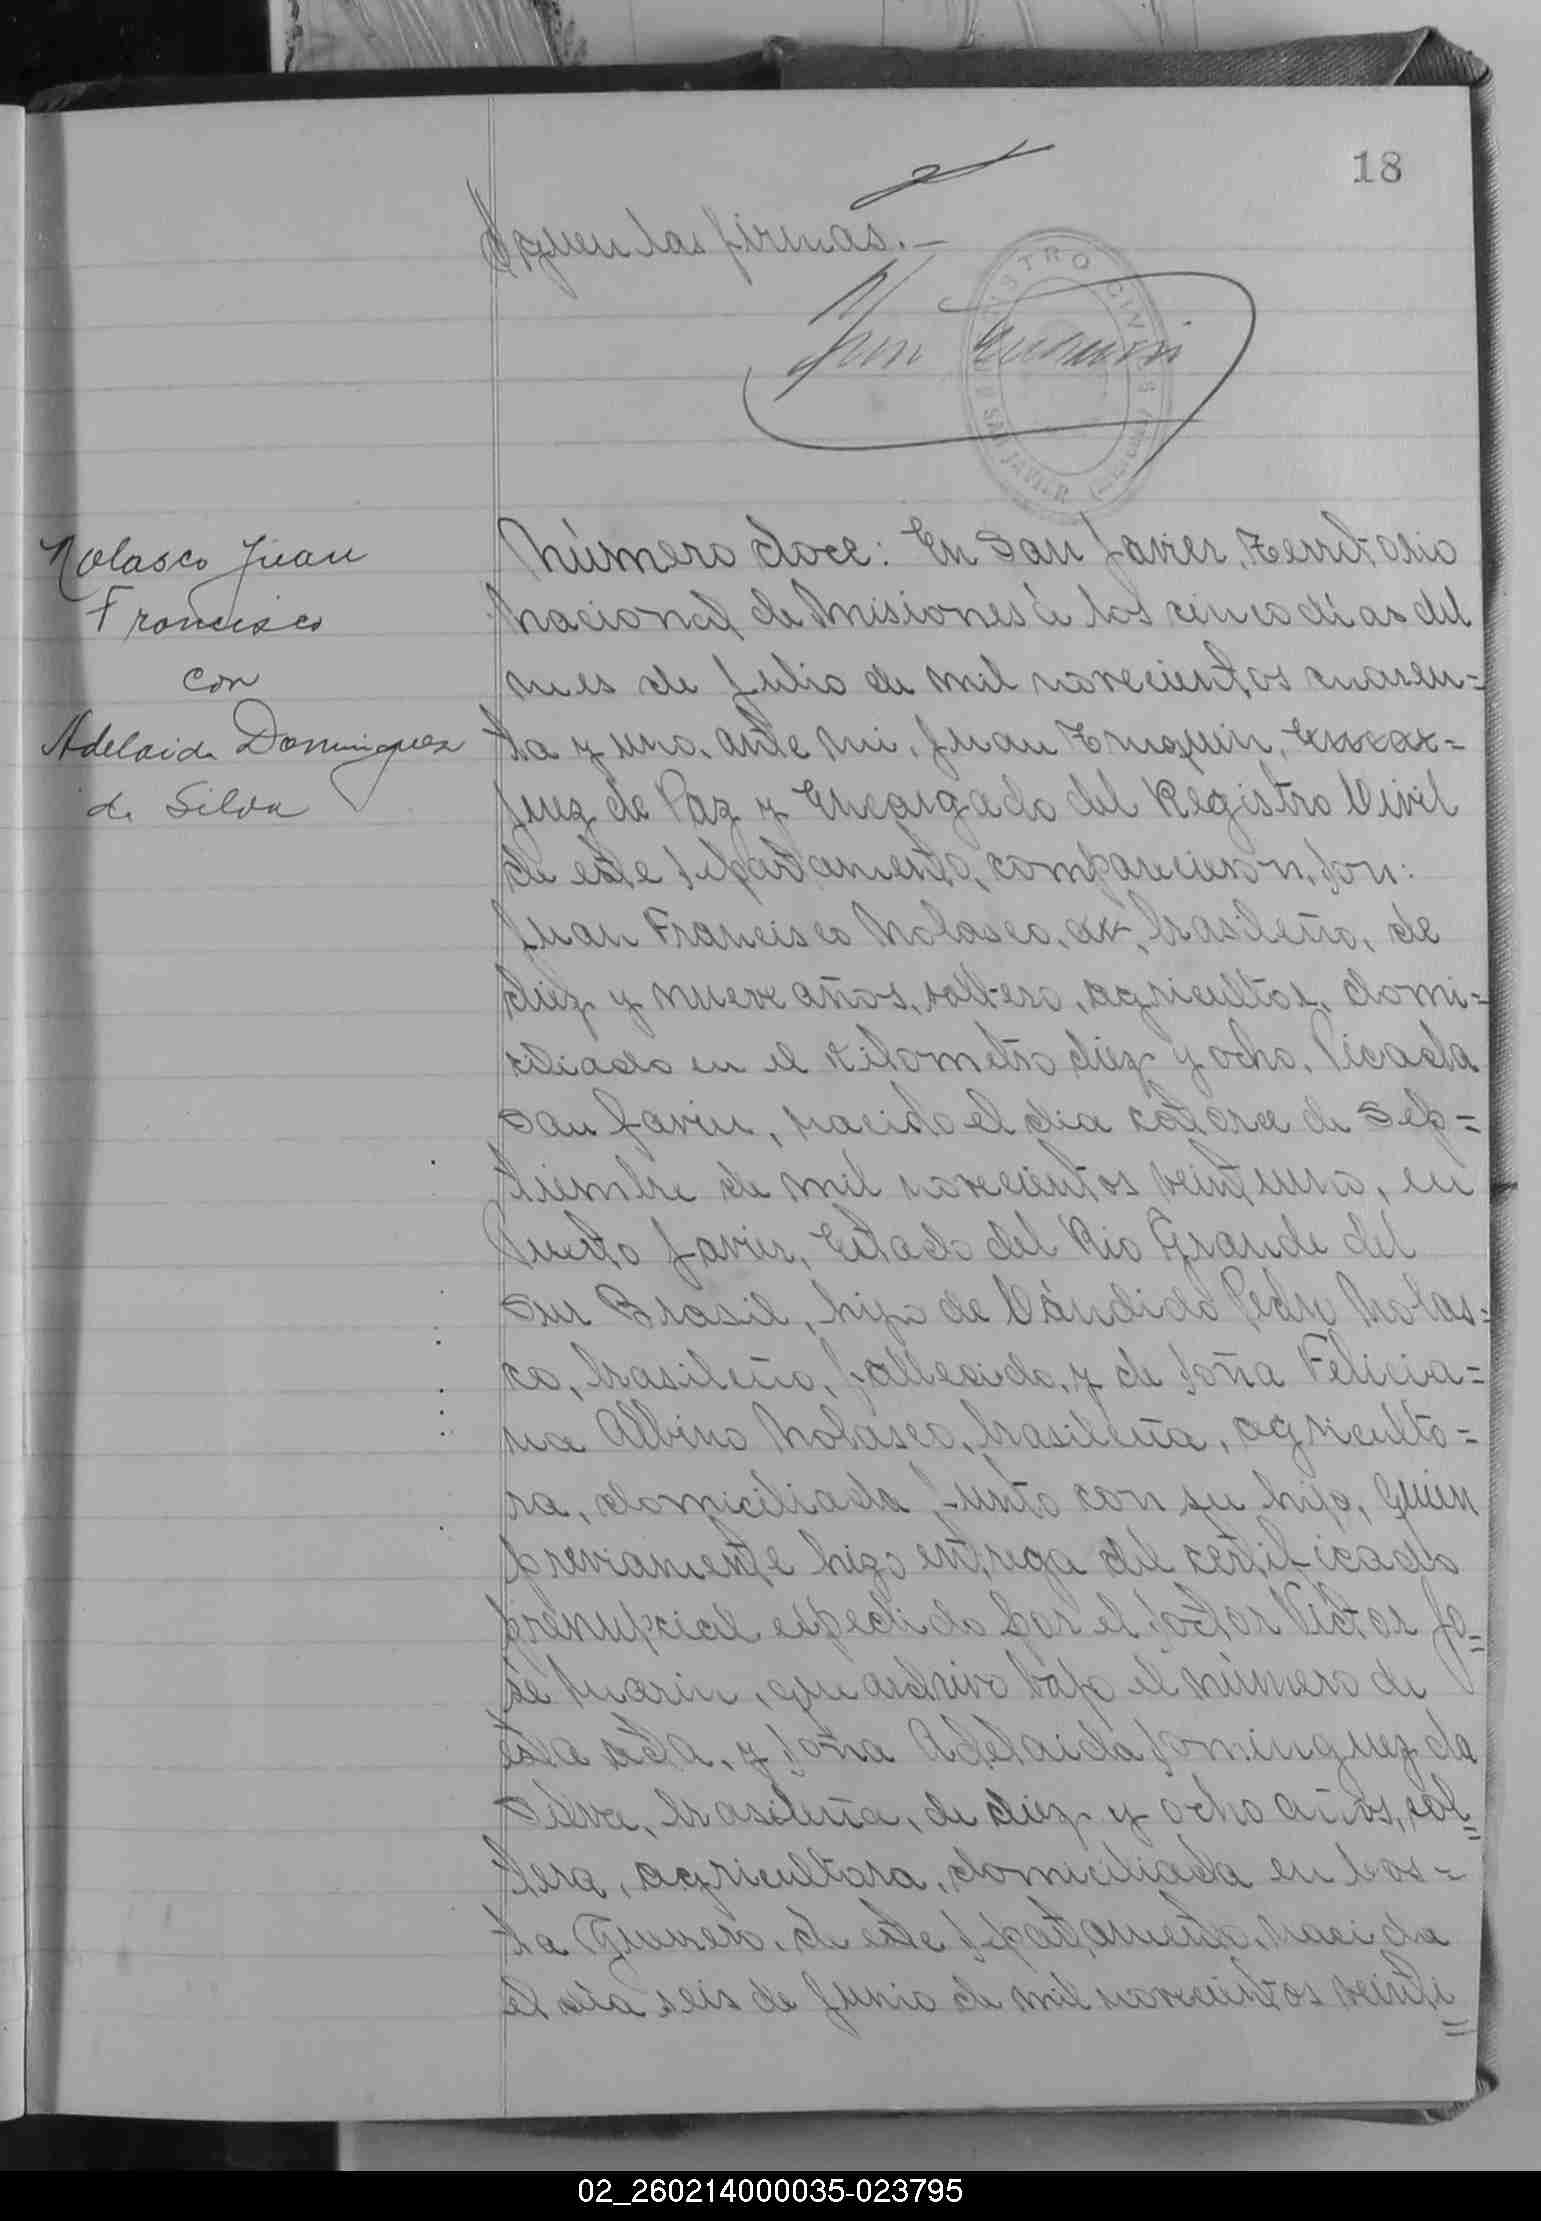 18
Siguen las firmas.—
REGISTRO CIVIL
SAN JAVIER
Nolasco Juan
Francisco
con
Adelaida Dominguez
da Silva
Número doce: En San Javier, Territorio
Nacional de Misiones á los cinco días del
mes de Julio de mil novecientos cuaren=
ta y uno, ante mi, Juan Enaquin,
Juez de Paz y Encargado del Registro Civil
de este Departamento, comparecieron, Don:
Juan Francisco Nolasco, brasileño, de
diez y nueve años, soltero, agricultor, domi=
ciliado en el Kilometro diez y ocho, Picada
San Javier, nacido el dia catorce de Sep=
tiembre de mil novecientos veintiuno, en
Puerto Javier, Estado del Rio Grande del
Sur Brasil, hijo de Cándido Pedro Nolas=
co, brasileño, fallecido, y de Doña Felicia=
na Albino Nolasco, brasileña, agriculto=
ra, domiciliada junto con su hijo, quien
previamente hizo entrega del certificado
prenupcial espedido por el Doctor Victor Jo=
sé Marin, que archivo bajo el número de
esta acta, y Doña Adelaida Dominguez da
Silva, brasileña, de diez y ocho años, sol=
tera, agricultora, domiciliada en Cos=
ta Guerrero, de este Departamento, nacida
el dia seis de Junio de mil novecientos veinti=
02_260214000035-023795